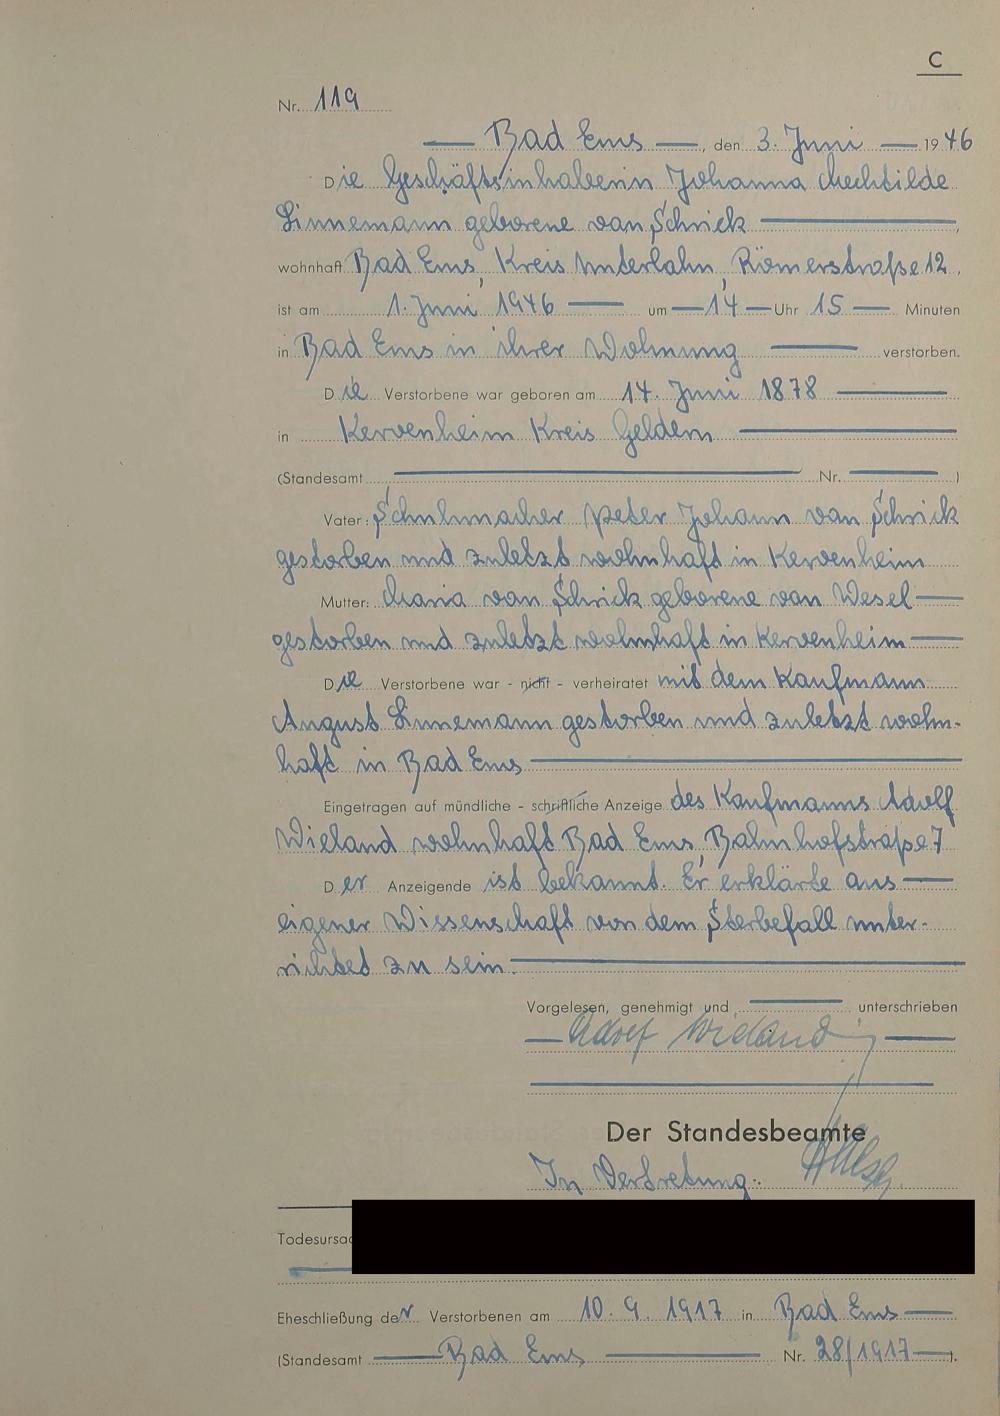 C
Nr. 119
Bad Ems, den 3. Juni 1946
Die Geschäftsinhaberin Johanna Mechtilde
Linnemann geborene van Schrick,
wohnhaft Bad Ems, Kreis Unterlahn, Römerstraße 12,
ist am 1. Juni 1946 um 14 Uhr 15 Minuten
in Bad Ems in ihrer Wohnung verstorben.
Die Verstorbene war geboren am 14. Juni 1878
in Kervenheim Kreis Geldern
(Standesamt Nr. )
Vater: Schuhmacher Peter Johann van Schrick
gestorben und zuletzt wohnhaft in Kervenheim
Mutter: Maria van Schrick geborene van Wesel
gestorben und zuletzt wohnhaft in Kervenheim
Die Verstorbene war - nicht - verheiratet mit dem Kaufmann
August Linnemann gestorben und zuletzt wohn-
haft in Bad Ems
Eingetragen auf mündliche - schriftliche Anzeige des Kaufmanns Adolf
Wieland wohnhaft Bad Ems, Bahnhofstraße 7
Der Anzeigende ist bekannt. Er erklärte aus
eigener Wissenschaft von dem Sterbefall unter-
richtet zu sein.
Vorgelesen, genehmigt und unterschrieben
Adolf Wieland
Der Standesbeamte
In Vertretung:
Todesursac
Eheschließung der Verstorbenen am 10. 9. 1917 in Bad Ems
(Standesamt Bad Ems Nr. 28/1917).